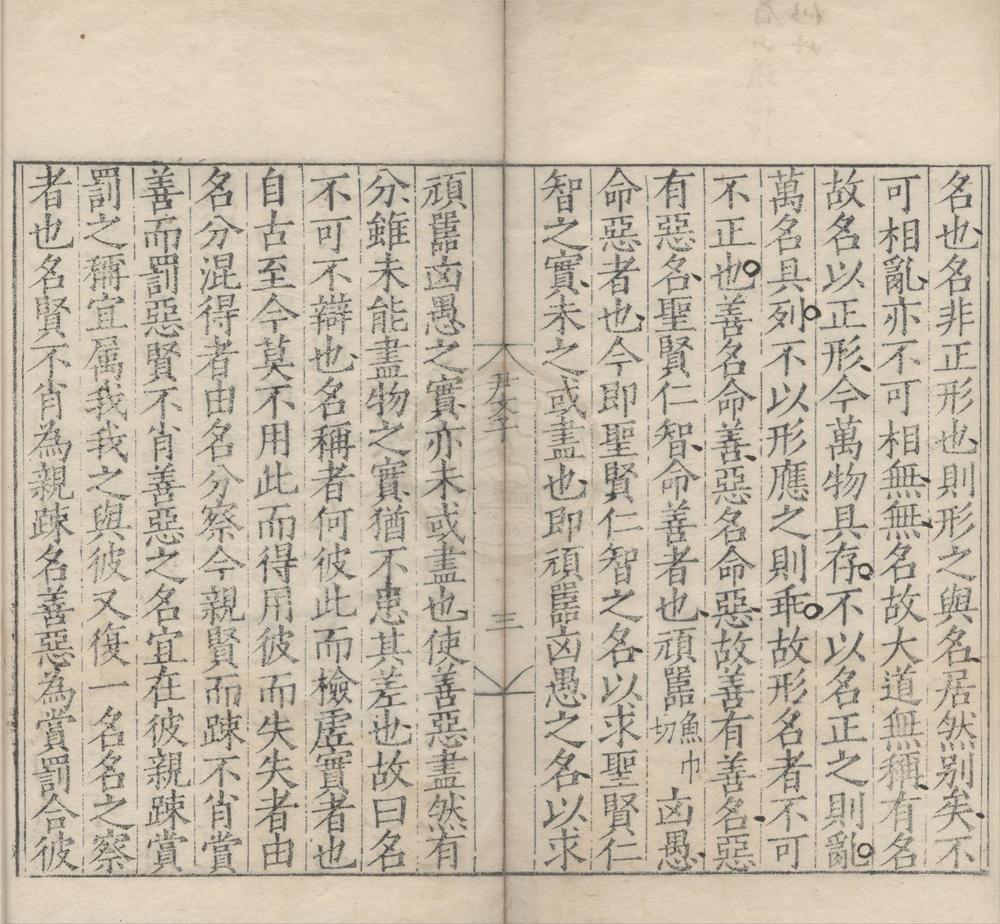 名也名非正形也則形之與名居然别矣不
可相亂亦不可相無無名故大道無稱有名
故名以正形今萬物具存不以名正之則亂
萬名具列不以形應之則乖故形名者不可
不正也善名命善惡名命惡故善有善名惡
有惡名聖賢仁智命善者也頑嚚魚巾切凶愚
命惡者也今即聖賢仁智之名以求聖賢仁
智之實未之或盡也即頑嚚凶愚之名以求
尹文子
三
頑嚚凶愚之實亦未或盡也使善惡盡然有
分雖未能盡物之實猶不患其差也故曰名
不可不辯也名稱者何彼此而檢虛實者也
自古至今莫不用此而得用彼而失失者由
名分混得者由名分察今親賢而踈不肖賞
善而罰惡賢不肖善惡之名宜在彼親踈賞
罰之稱宜属我我之與彼又復一名名之察
者也名賢不肖為親踈名善惡為賞罰合彼